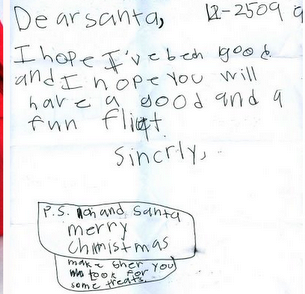 Dear santa, 12-2509
I hope I've beh good
and I hope you will
have a good and a
fun fliqt.
sincrly,
P.S. oh and Santa
merry
chmistmas
make sher you
took for
some treats.